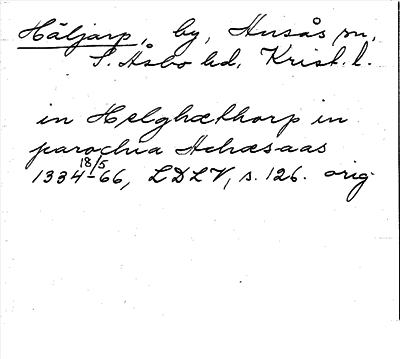 Häljarp, by, Husås sn,
S. Åsbo hd, Krist. l.
in Helghæthorp in
parochia Hehæsaas
18/5
1334-66, LDLV, s. 126. orig.